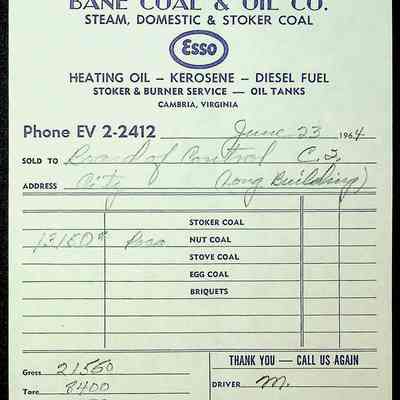 BANE COAL & OIL CO.
STEAM, DOMESTIC & STOKER COAL
Esso
HEATING OIL — KEROSENE — DIESEL FUEL
STOKER & BURNER SERVICE — OIL TANKS
CAMBRIA, VIRGINIA
Phone EV 2-2412 June 23 1964
SOLD TO Board of Control C. I.
ADDRESS City (Long Building)
STOKER COAL
13150# NUT COAL
STOVE COAL
EGG COAL
BRIQUETS
THANK YOU — CALL US AGAIN
Gross 21550
DRIVER M.
Tare 8400